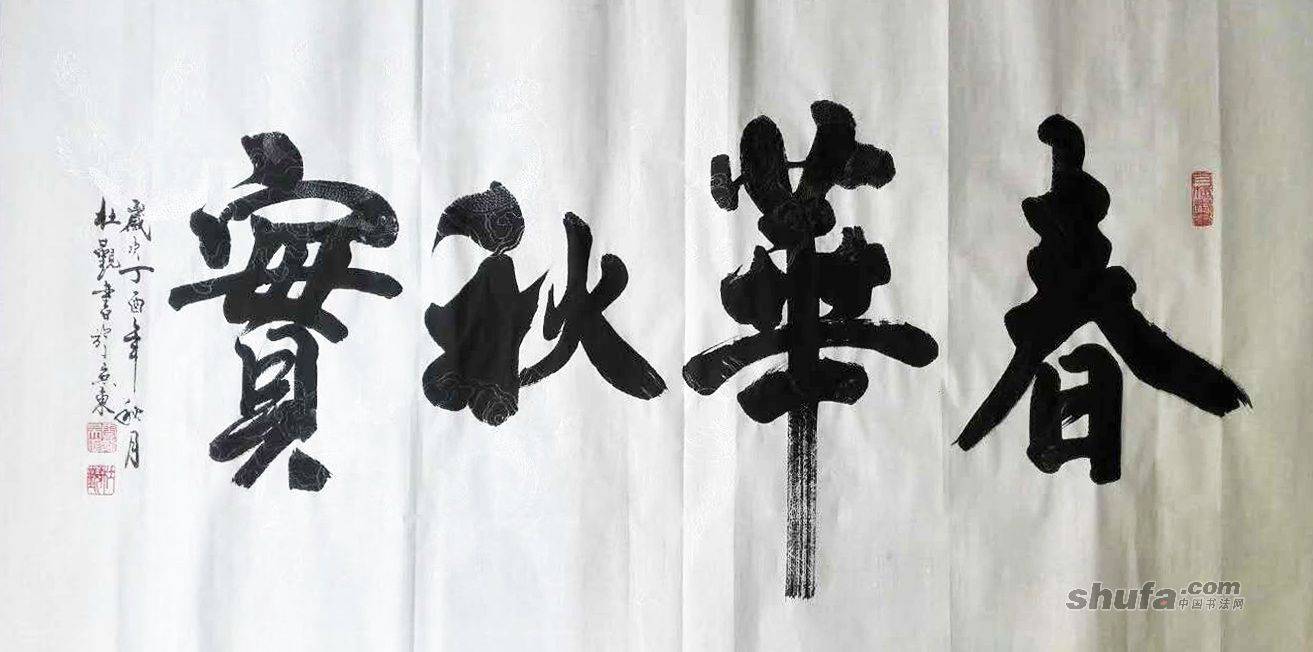 春華秋實
歲次丁酉年秋月
杜觀書於京東
shufa.com
中国书法网